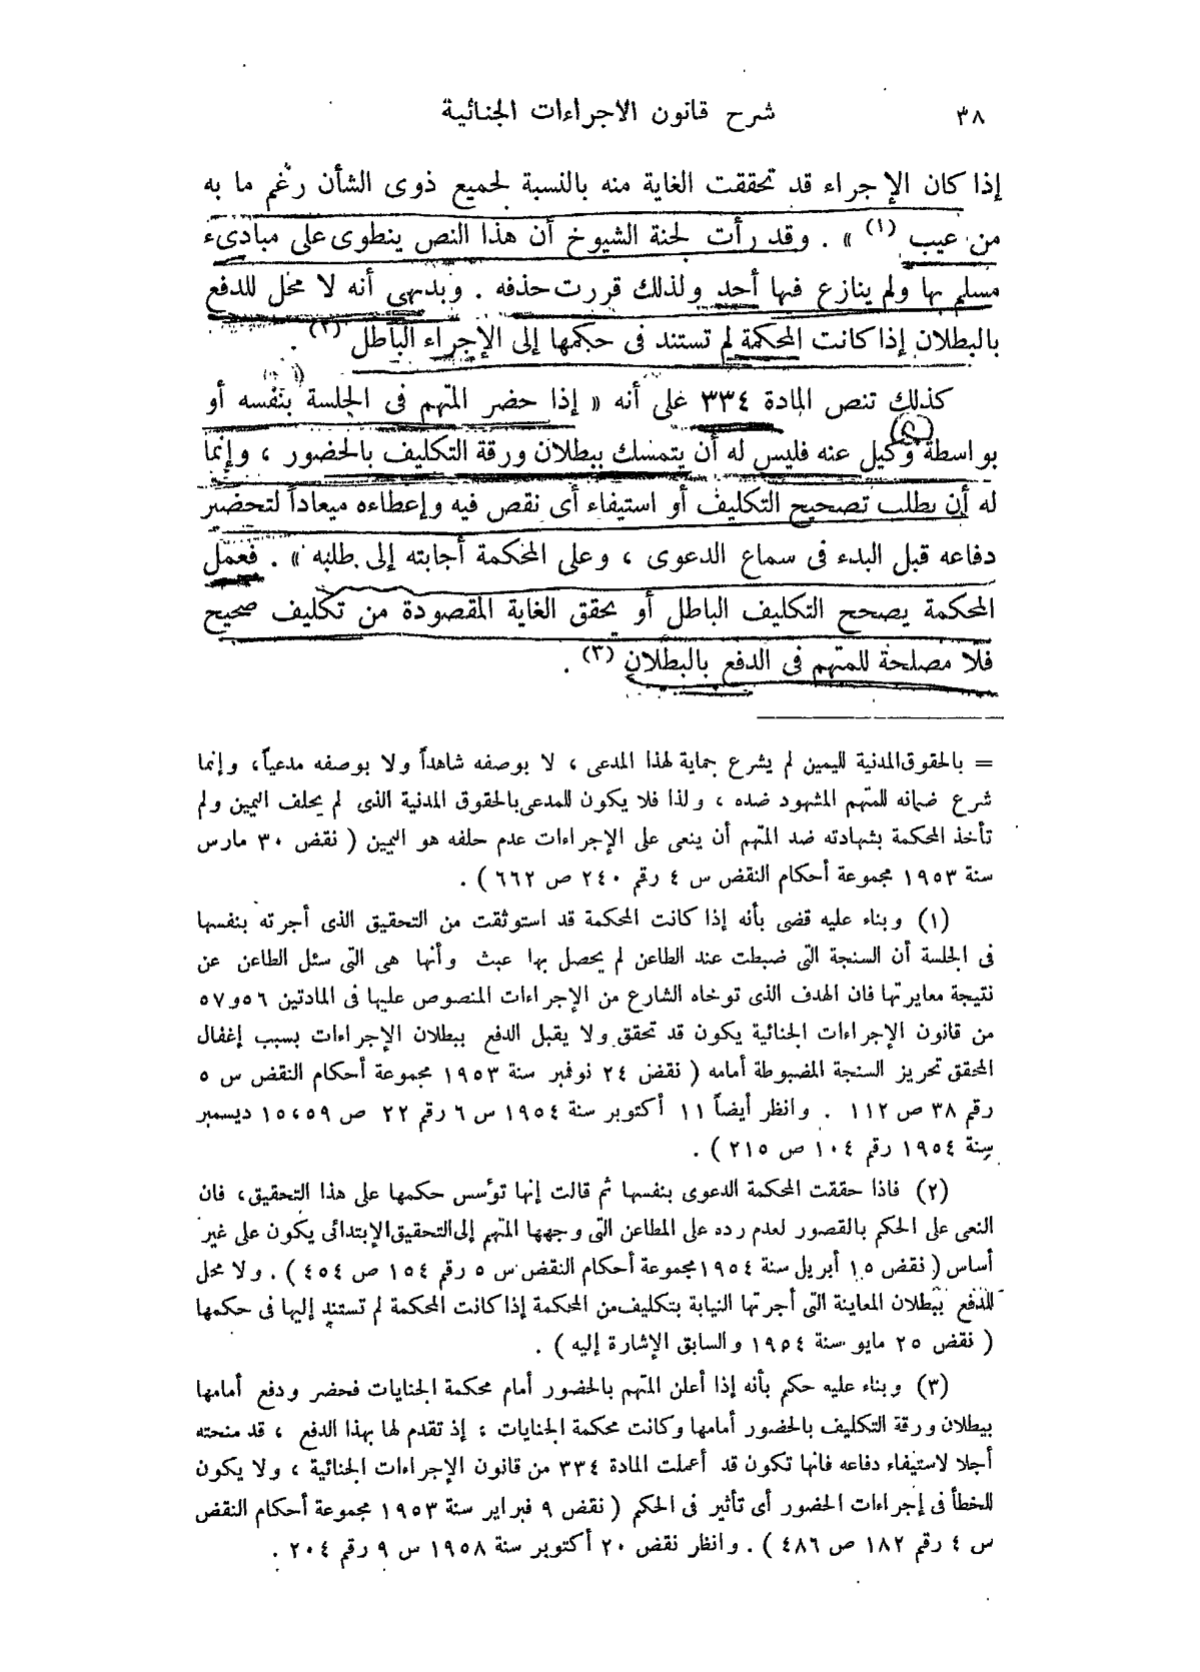 ٣٨
شرح قانون الاجراءات الجنائية
إذا كان الإجراء قد تحققت الغاية منه بالنسبة لجميع ذوى الشأن رغم ما به
من عيب (١) » . وقد رأت لجنة الشيوخ أن هذا النص ينطوى على مبادىء
مسلم بها ولم ينازع فيها أحد ولذلك قررت حذفه . وبدبهى أنه لا محل للدفع
بالبطلان إذا كانت المحكمة لم تستند فى حكمها إلى الإجراء الباطل (٢) .
كذلك تنص المادة ٣٣٤ على أنه « إذا حضر المتهم فى الجلسة بنفسه أو
بواسطة وكيل عنه فليس له أن يتمسك ببطلان ورقة التكليف بالحضور ، وإنما
له أن يطلب تصحيح التكليف أو استيفاء أى نقص فيه وإعطاءه ميعاداً لتحضير
دفاعه قبل البدء فى سماع الدعوى ، وعلى المحكمة أجابته إلى طلبه » . فعمل
المحكمة يصحح التكليف الباطل أو يحقق الغاية المقصودة من تكليف صحيح
فلا مصلحة للمتهم فى الدفع بالبطلان (٣) .
= بالحقوق المدنية لليمين لم يشرع حماية لهذا المدعى ، لا بوصفه شاهداً ولا بوصفه مدعياً، وإنما
شرع ضمانه للمتهم المشهود ضده ، ولذا فلا يكون للمدعى بالحقوق المدنية الذى لم يحلف اليمين ولم
تأخذ المحكمة بشهادته ضد المتهم أن ينعى على الإجراءات عدم حلفه هو اليمين ( نقض ٣٠ مارس
سنة ١٩٥٣ مجموعة أحكام النقض س ٤ رقم ٢٤٠ ص ٦٦٢ ) .
(١) وبناء عليه قضى بأنه إذا كانت المحكمة قد استوثقت من التحقيق الذى أجرته بنفسها
فى الجلسة أن السنجة التى ضبطت عند الطاعن لم يحصل بها عبث وأنها هى التى سئل الطاعن عن
نتيجة معايرتها فان الهدف الذى توخاه الشارع من الإجراءات المنصوص عليها فى المادتين ٥٦ و ٥٧
من قانون الإجراءات الجنائية يكون قد تحقق ولا يقبل الدفع ببطلان الإجراءات بسبب إغفال
المحقق تحريز السنجة المضبوطة أمامه ( نقض ٢٤ نوفمبر سنة ١٩٥٣ مجموعة أحكام النقض س ٥
رقم ٣٨ ص ١١٢ . وانظر أيضاً ١١ أكتوبر سنة ١٩٥٤ س ٦ رقم ٢٢ ص ٥٩، ١٥ ديسمبر
سنة ١٩٥٤ رقم ١٠٤ ص ٢١٥ ) .
(٢) فاذا حققت المحكمة الدعوى بنفسها ثم قالت إنها تؤسس حكمها على هذا التحقيق، فان
النعى على الحكم بالقصور لعدم رده على المطاعن التى وجهها المتهم إلى التحقيق الإبتدائى يكون على غير
أساس ( نقض ١٥ أبريل سنة ١٩٥٤ مجموعة أحكام النقض س ٥ رقم ١٥٤ ص ٤٥٤ ) . ولا محل
للدفع ببطلان المعاينة التى أجرتها النيابة بتكليف من المحكمة إذا كانت المحكمة لم تستند إليها فى حكمها
( نقض ٢٥ مايو سنة ١٩٥٤ والسابق الإشارة إليه ) .
(٣) وبناء عليه حكم بأنه إذا أعلن المتهم بالحضور أمام محكمة الجنايات فحضر ودفع أمامها
ببطلان ورقة التكليف بالحضور أمامها وكانت محكمة الجنايات ؛ إذ تقدم لها بهذا الدفع ، قد منحته
أجلا لاستيفاء دفاعه فانها تكون قد أعملت المادة ٣٣٤ من قانون الإجراءات الجنائية ، ولا يكون
للخطأ فى إجراءات الحضور أى تأثير فى الحكم ( نقض ٩ فبراير سنة ١٩٥٣ مجموعة أحكام النقض
س ٤ رقم ١٨٢ ص ٤٨٦ ) . وانظر نقض ٢٠ أكتوبر سنة ١٩٥٨ س ٩ رقم ٢٠٤ .